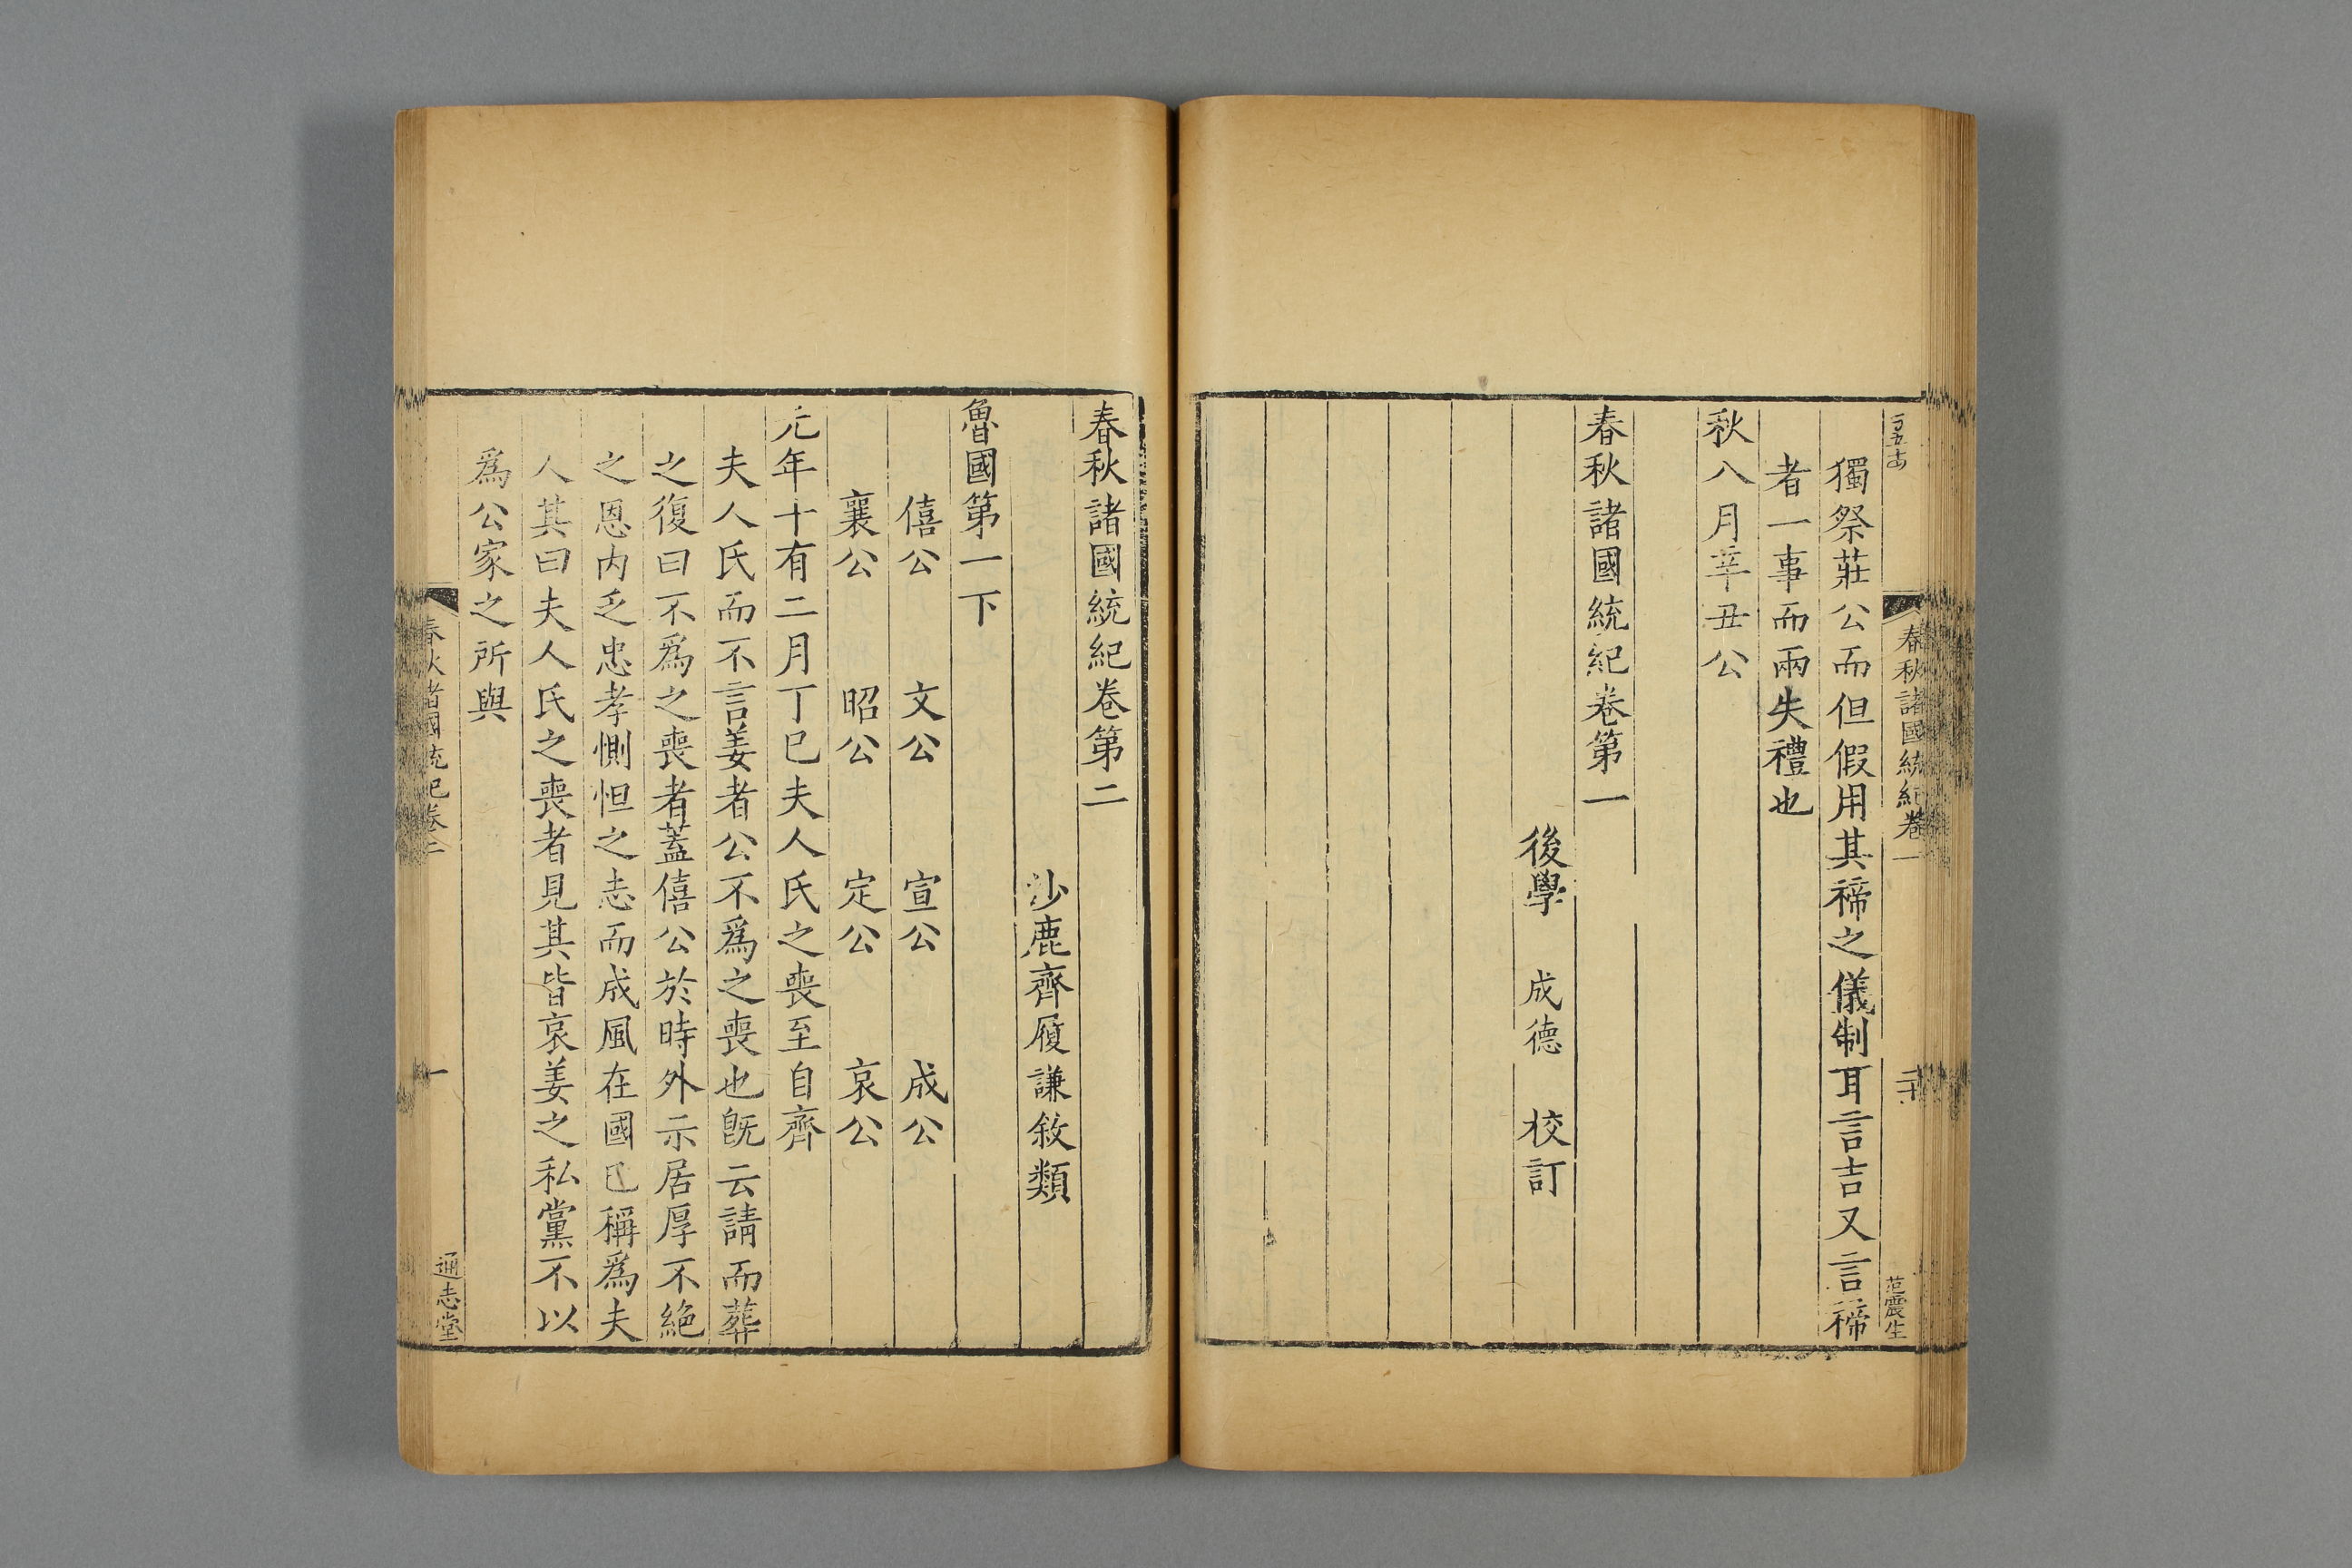 春秋諸國統紀卷一
二十
范震生
獨祭莊公而但假用其禘之儀制耳言吉又言禘
者一事而兩失禮也
秋八月辛丑公
春秋諸國統紀卷第一
後學 成德 校訂
春秋諸國統紀卷第二
沙鹿齊履謙敘類
魯國第一下
僖公 文公 宣公 成公
襄公 昭公 定公 哀公
元年十有二月丁巳夫人氏之喪至自齊
夫人氏而不言姜者公不爲之喪也旣云請而葬
之復曰不爲之喪者蓋僖公於時外示居厚不絕
之恩內乏忠孝惻怛之志而成風在國已稱爲夫
人其曰夫人氏之喪者見其皆哀姜之私黨不以
爲公家之所與
春秋諸國統紀卷二
一
通志堂